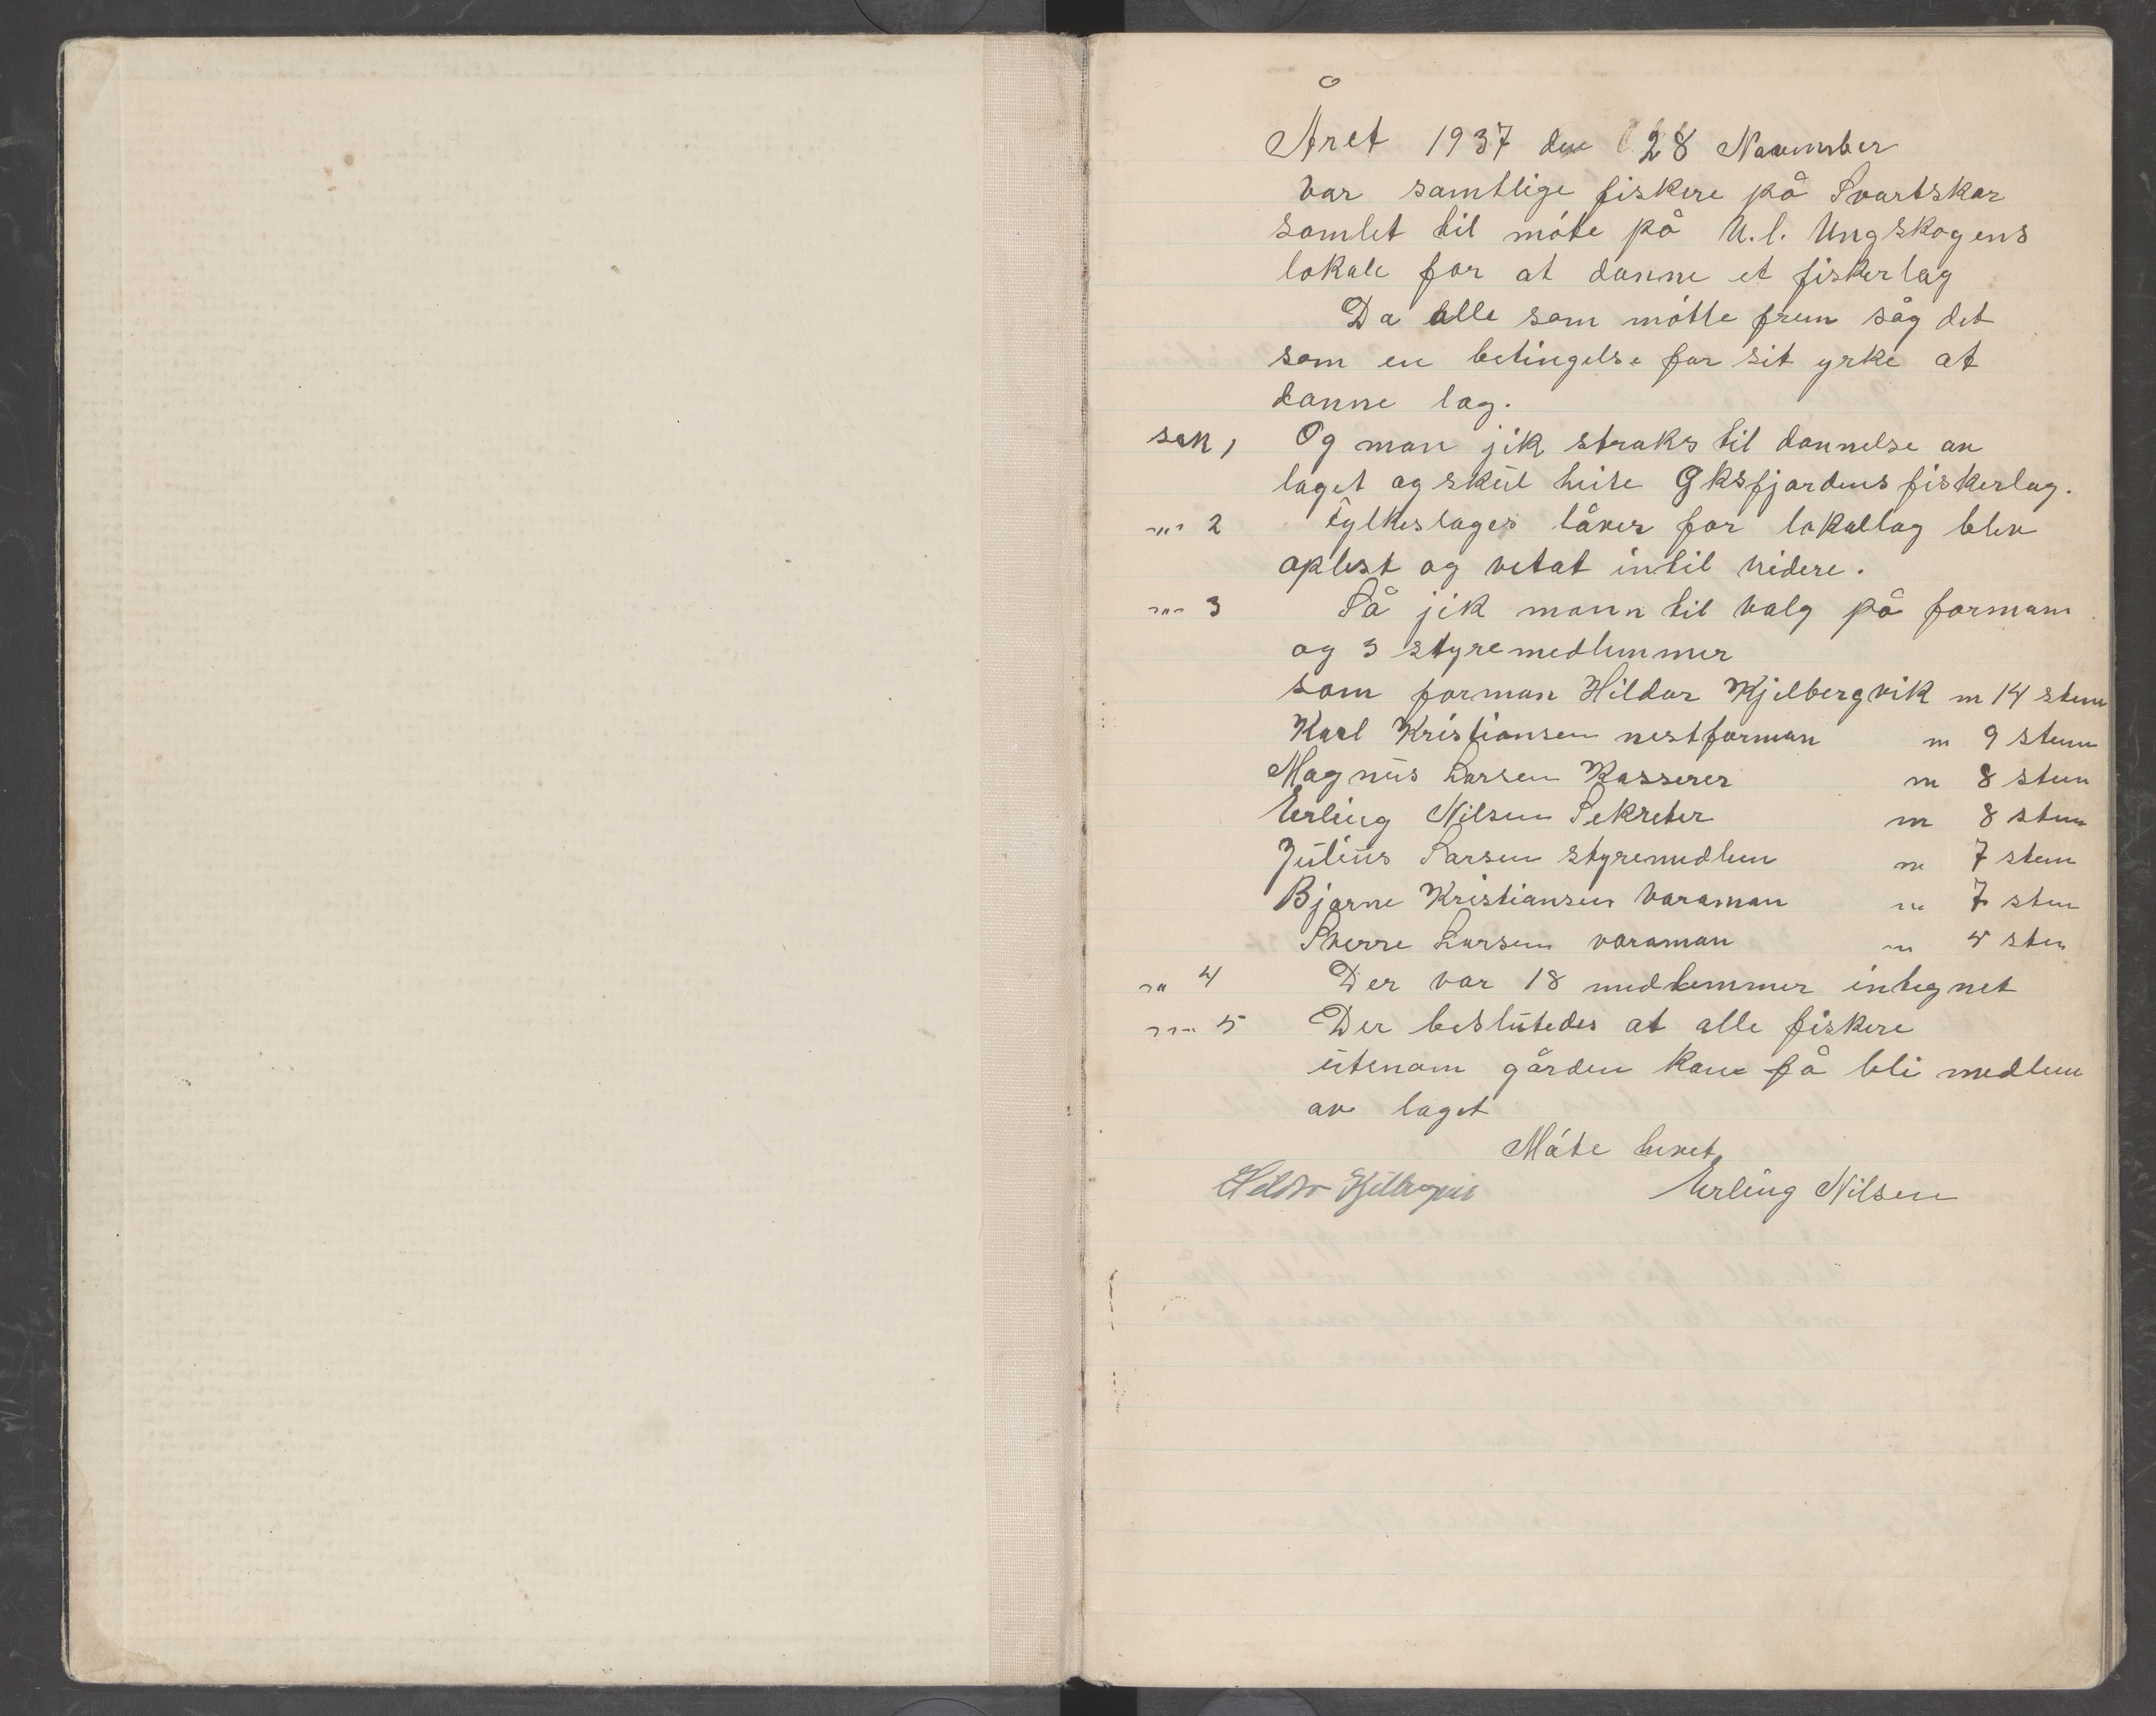 Året 1937 den 28 November
var samtlige fiskere på Svartskar
samlet til móte på U.l. Ungskogens
lokale for at danne et fiskerlag
Da alle som mótte frem såg det
som en betingelse for sit yrke at
danne lag.
sak 1 Og man jik straks til dannelse av
laget og skul heite Gksfjordens fiskerlag.
-"- 2 Fylkeslages låver for lokallag blev
oplest og vetat intil videre.
-"- 3 Så jik mann til valg på formann
og 3 styremedlemmer
som forman Hildor Kjelbergvik m 14 stem
Karl Kristiansen nestforman m 9 stem
Magnus Larsen Kasserer m 8 stem
Erling Nilsen Sekreter m 8 stem
Julius Larsen styremedlem m 7 stem
Bjarne Kristiansen varaman m 7 stem
Sverre Larsen varaman m 5 stem
-"- 4 Der var 18 medlemmer integnet
-"- 5 Der beslutedes at alle fiskere
utenom gården kan få bli medlem
av laget
Móte hevet
Hildor Kjelbergvik Erling Nilsen